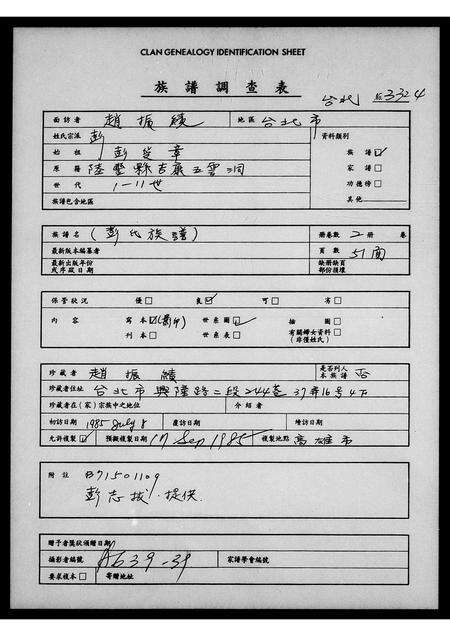 CLAN GENEALOGY IDENTIFICATION SHEET
族譜調查表
台北 3324
面訪者 趙振績 地區 台北市
姓氏宗派 彭 資料類別
始祖 章 族譜☑
原籍 陸豐縣吉康五雲洞 家譜□
世代 1-11世 功德榜□
族譜包含地區 其他
族譜名 (彭氏族譜) 冊卷數 2 冊 卷
最新版本編纂者 頁數 51面
最新出版年份或序跋日期 缺冊缺頁部份損壞
保管狀況 優□ 良☑ 可□ 劣□
內容 寫本☑(影印) 世系圖☑ 插圖□
刊本□ 世系表□ 有關婦女資料□(非僅姓氏)
珍藏者 趙振績 是否列入本族譜 否
珍藏者住址 台北市興隆路二段244巷37弄16號4F
珍藏者在(家)宗族中之地位 介紹者
初訪日期 1985 July 8 覆訪日期 續訪日期
允許複製☑ 預擬複製日期 17 Sep 1985 複製地點 高雄市
附註 B71501109
彭志拔·提供.
贈予者獎狀頒贈日期
攝影者編號 A639-39 家譜學會編號
要求複本□ 寄贈地址